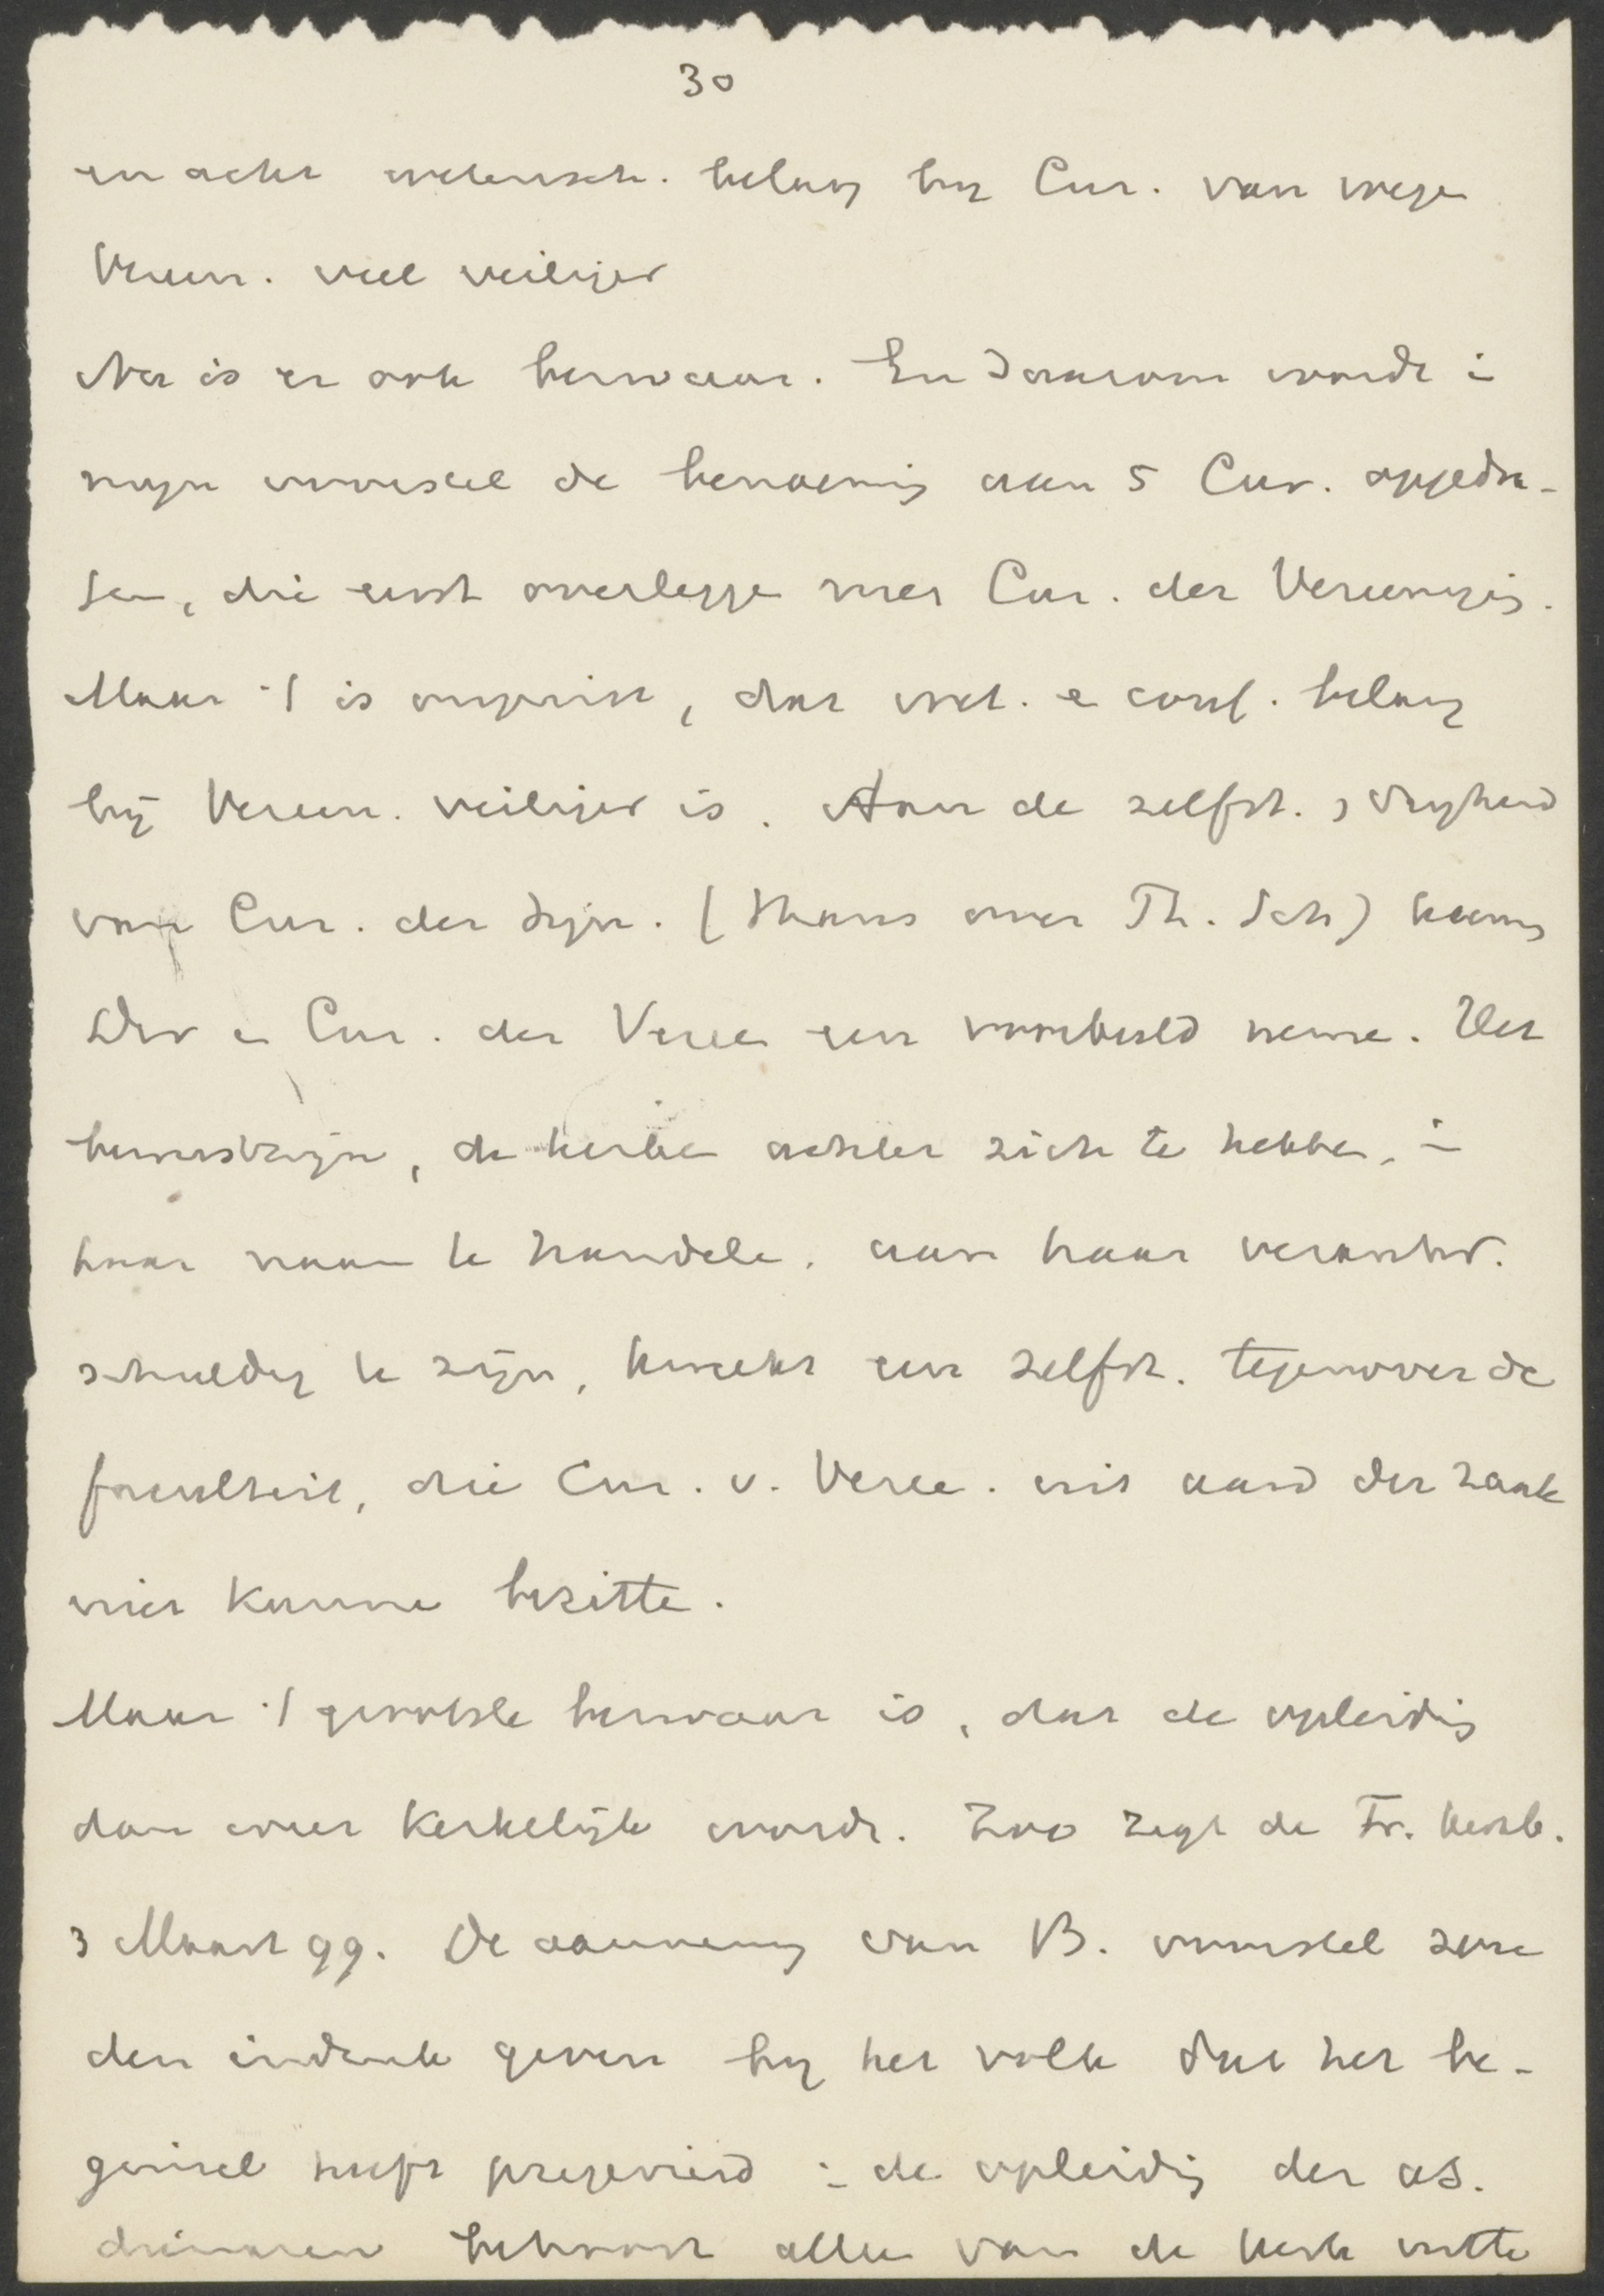 30
en acht wetensch. belang bij Cur. van wege
Vereen. veel veiliger
Nu is er ook bezwaar. En daarom wordt i
mijn voorstel de benoeming aan 5 Cur. opgedra-
gen, die eerst overlegge met Cur. der Vereenigig.
Maar 't is onjuist, dat wet. e conf. belang
bij Vereen. veiliger is. Aan de zelfst. , vrijheid
van Cur. der Syn. (thans over Th. Sch) kunn
Dir e Cur. der Veree een voorbeeld neme. Het
bewustzijn, de kerke achter zich te hebbe, i
haar naam te handele, aan haar verantw.
schuldig te zijn, kweekt een zelfst. tegenover de
faculteit, die Cur. v. Veree. uit aard der zaak
niet kunne bezitte.
Maar 't grootste bezwaar is, dat de opleidig
dan weer kerkelijk wordt. Zoo zegt de Fr. Kerkb.
3 Maart 99. De aanneming van B. voorstel zou
den indruk geven bij het volk dat het be-
ginsel heeft gezegevierd : de opleidig der as.
dienaren behoort alle van de kerk uitte